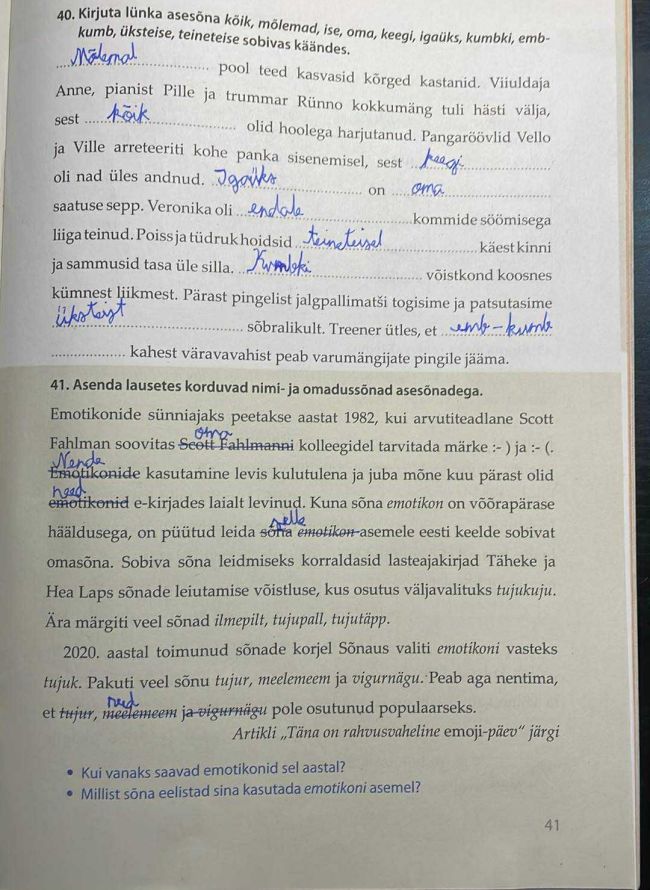 40. Kirjuta lünka asesõna kõik, mõlemad, ise, oma, keegi, igaüks, kumbki, emb-
kumb, üksteise, teineteise sobivas käändes.
Mõlemal pool teed kasvasid kõrged kastanid. Viiuldaja
Anne, pianist Pille ja trummar Rünno kokkumäng tuli hästi välja,
sest kõik olid hoolega harjutanud. Pangaröövlid Vello
ja Ville arreteeriti kohe panka sisenemisel, sest keegi
oli nad üles andnud. Igaüks on oma
saatuse sepp. Veronika oli endale kommide söömisega
liiga teinud. Poiss ja tüdruk hoidsid teineteisel käest kinni
ja sammusid tasa üle silla. Kumbki võistkond koosnes
kümnest liikmest. Pärast pingelist jalgpallimatši togisime ja patsutasime
üksteist sõbralikult. Treener ütles, et emb-kumb
kahest väravavahist peab varumängijate pingile jääma.
41. Asenda lausetes korduvad nimi- ja omadussõnad asesõnadega.
Emotikonide sünniajaks peetakse aastat 1982, kui arvutiteadlane Scott
oma
Fahlman soovitas Scott Fahlmanni kolleegidel tarvitada märke :- ) ja :- (.
Nende
Emotikonide kasutamine levis kulutulena ja juba mõne kuu pärast olid
need
emotikonid e-kirjades laialt levinud. Kuna sõna emotikon on võõrapärase
selle
hääldusega, on püütud leida sõna emotikon asemele eesti keelde sobivat
omasõna. Sobiva sõna leidmiseks korraldasid lasteajakirjad Täheke ja
Hea Laps sõnade leiutamise võistluse, kus osutus väljavalituks tujukuju.
Ära märgiti veel sõnad ilmepilt, tujupall, tujutäpp.
2020. aastal toimunud sõnade korjel Sõnaus valiti emotikoni vasteks
tujuk. Pakuti veel sõnu tujur, meelemeem ja vigurnägu. Peab aga nentima,
need
et tujur, meelemeem ja vigurnägu pole osutunud populaarseks.
Artikli „Täna on rahvusvaheline emoji-päev“ järgi
• Kui vanaks saavad emotikonid sel aastal?
• Millist sõna eelistad sina kasutada emotikoni asemel?
41